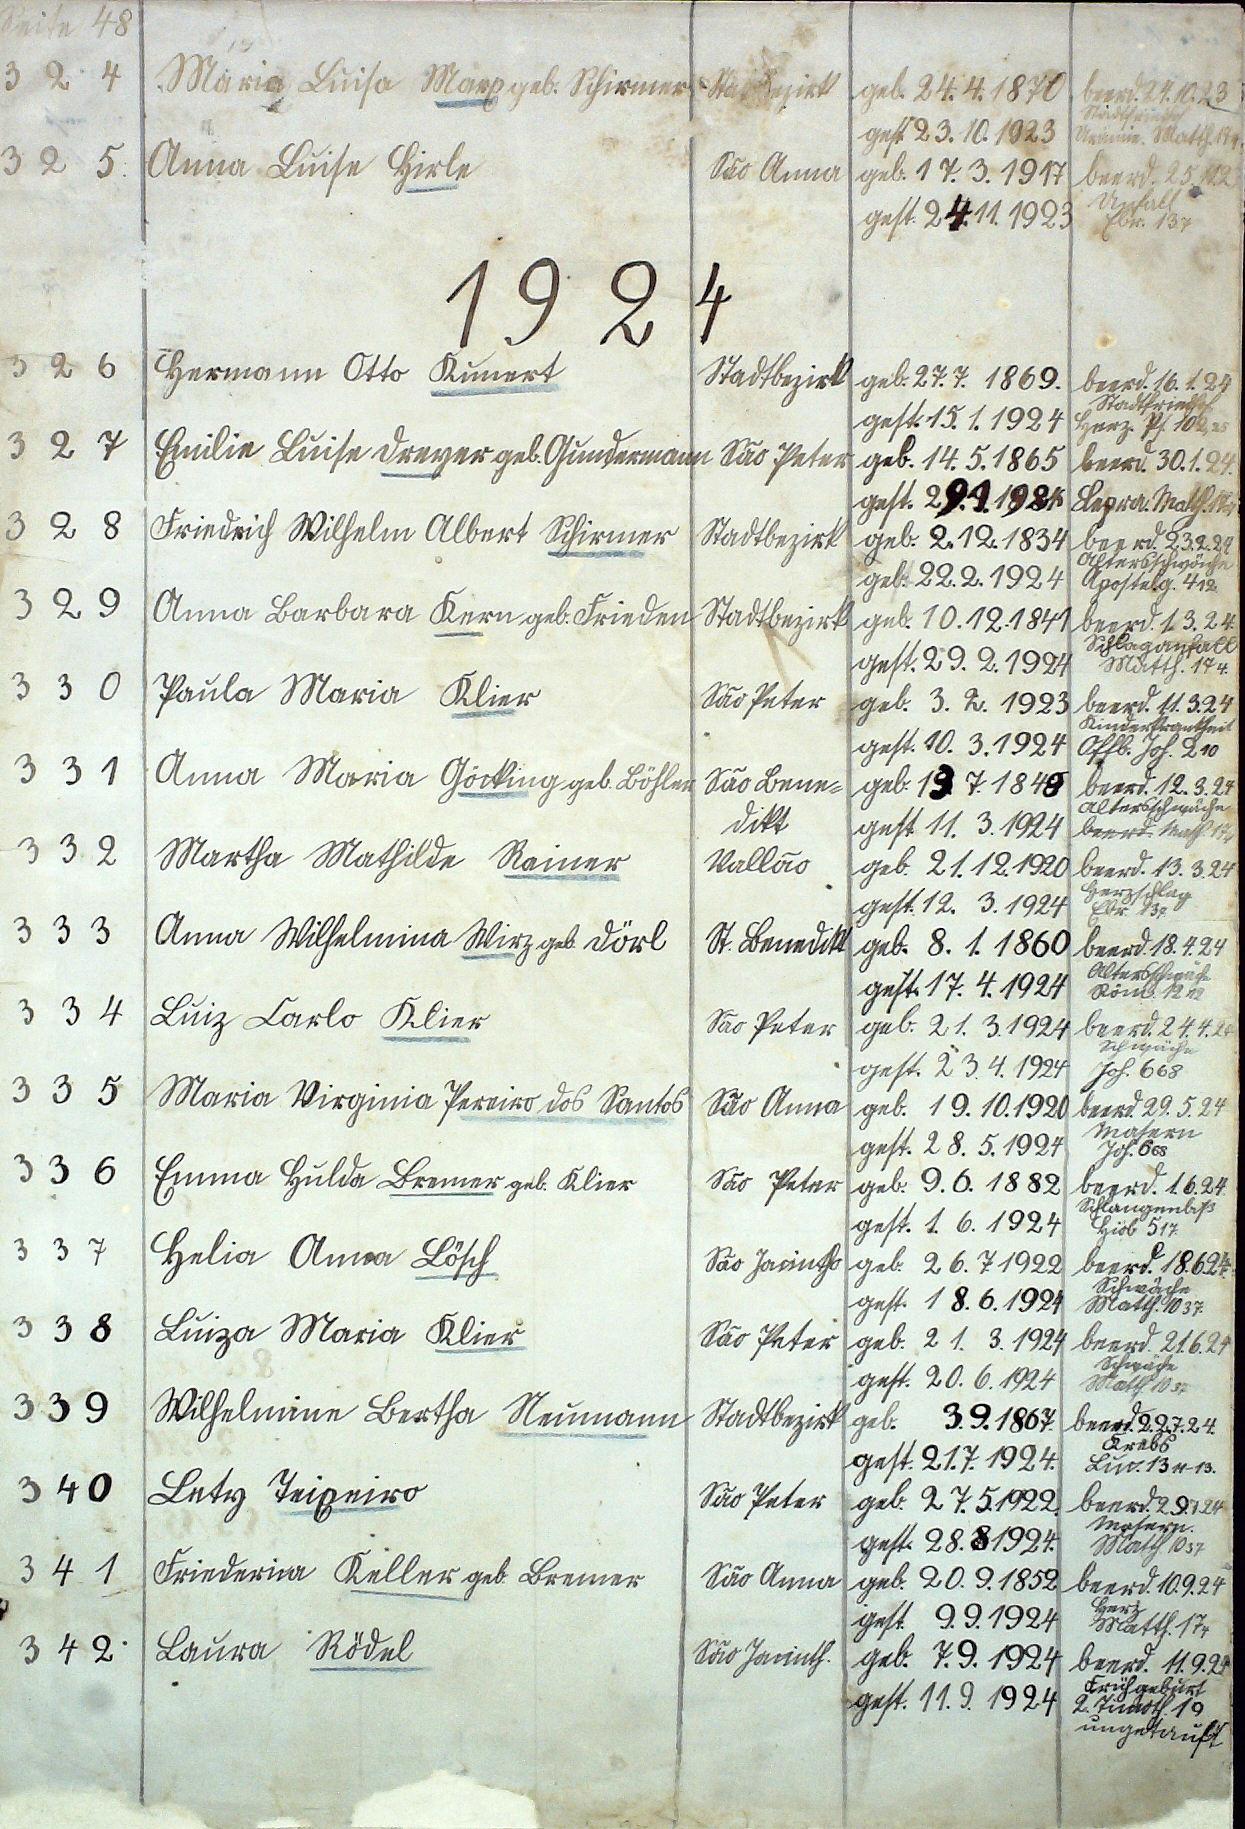 Seite 48
324 Maria Luisa Marx geb. Schirmer Stadtbezirk geb. 24.4.1870 beerd. 24.10.23
Stadtfriedhof
gest. 23.10.1923 Urämie. Matth. 17
325. Anna Luise Hirle São Anna geb. 17.3.1917 beerd. 25.11.2
Unfall
gest. 24.11.1923 Ebr. 13
1924
326 Hermann Otto Kunert Stadtbezirk geb. 27.7.1869. beerd. 16.1.24
Stadtfriedhof
gest. 15.1.1924 Herz. Ps.
327 Emilie Luise Dreyer geb. Gundermann São Peter geb. 14.5.1865 beerd. 30.1.24.
gest. 29.1.1924 Lepra. Matth.
328 Friedrich Wilhelm Albert Schirmer Stadtbezirk geb. 2.12.1834 beerd. 23.2.24
Altersschwäche
geb. 22.2.1924 Apostelg. 4 12
329 Anna Barbara Kern geb. Frieden Stadtbezirk geb. 10.12.1841 beerd. 1.3.24
Schlaganfall
gest. 29.2.1924 Matth. 17 4.
330 Paula Maria Klier São Peter geb. 3.2.1923 beerd. 11.3.24
Kinderkrankheit
gest. 10.3.1924 Offb. Joh. 2 10
331 Anna Maria Göcking geb. Böhler São Bene= geb. 13.7.1848 beerd. 12.3.24
Altersschwäche
dikt gest 11.3.1924 beerd.
332 Martha Mathilde Rainer Vallão geb. 21.12.1920 beerd. 13.3.24
Herzschlag
gest. 12.3.1924 Ebr. 13
333 Anna Wilhelmina Wirz geb. Dörl St. Benedikt geb. 8.1.1860 beerd. 18.4.24
Altersschwäche
gest. 17.4.1924 Röm. 12 12
334 Luiz Carlo Klier Sao Peter geb. 21.3.1924 beerd. 24.4.24
Schwäche
gest. 23 4.1924 Joh. 6 68
335 Maria Virginia Pereiro dos Santos São Anna geb. 19.10.1920 beerd. 29.5.24
Masern
gest. 28.5.1924 Joh. 6 68
336 Emma Hulda Bremer geb. Klier São Peter geb. 9.6.1882 beerd. 1.6.24
Schlangenbiß
gest. 1.6.1924 Hiob 5 17
337 Helia Anna Lösch São Jacintho geb. 26.7 1922 beerd. 18.6.24
Schwäche
gest. 18.6.1924 Matth. 10 37
338 Luiza Maria Klier São Peter geb. 21.3.1924 beerd. 21.6.24
Schwäche
gest. 20.6.1924 Math 10 37
339 Wilhelmine Bertha Neumann Stadtbezirk geb. 3.9.1867. beerd. 22.7.24.
Krebs
gest. 21.7.1924. Luc. 13 11-13.
340 Lety Teixeiro São Peter geb. 27.5.1922. beerd. 29.
Masern.
gest. 28.8 1924. Math 10 37
341 Friederica Keller geb. Bremer São Anna geb. 20.9.1852 beerd. 10.9.24
Herz
gest. 9.9.1924 Matth. 17 4
342. Laura Rödel São Jacinth. geb. 7.9.1924 beerd. 11.9.24
Frühgeburt
gest. 11.9.1924 2. Timoth. 1 9
ungetauft